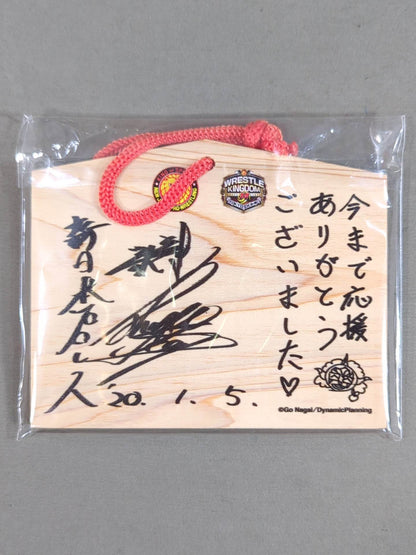 WRESTLE
KINGDOM
今まで応援
ありがとう
ございました♡
新日本プロレス
'20. 1. 5.
©Go Nagai/DynamicPlanning